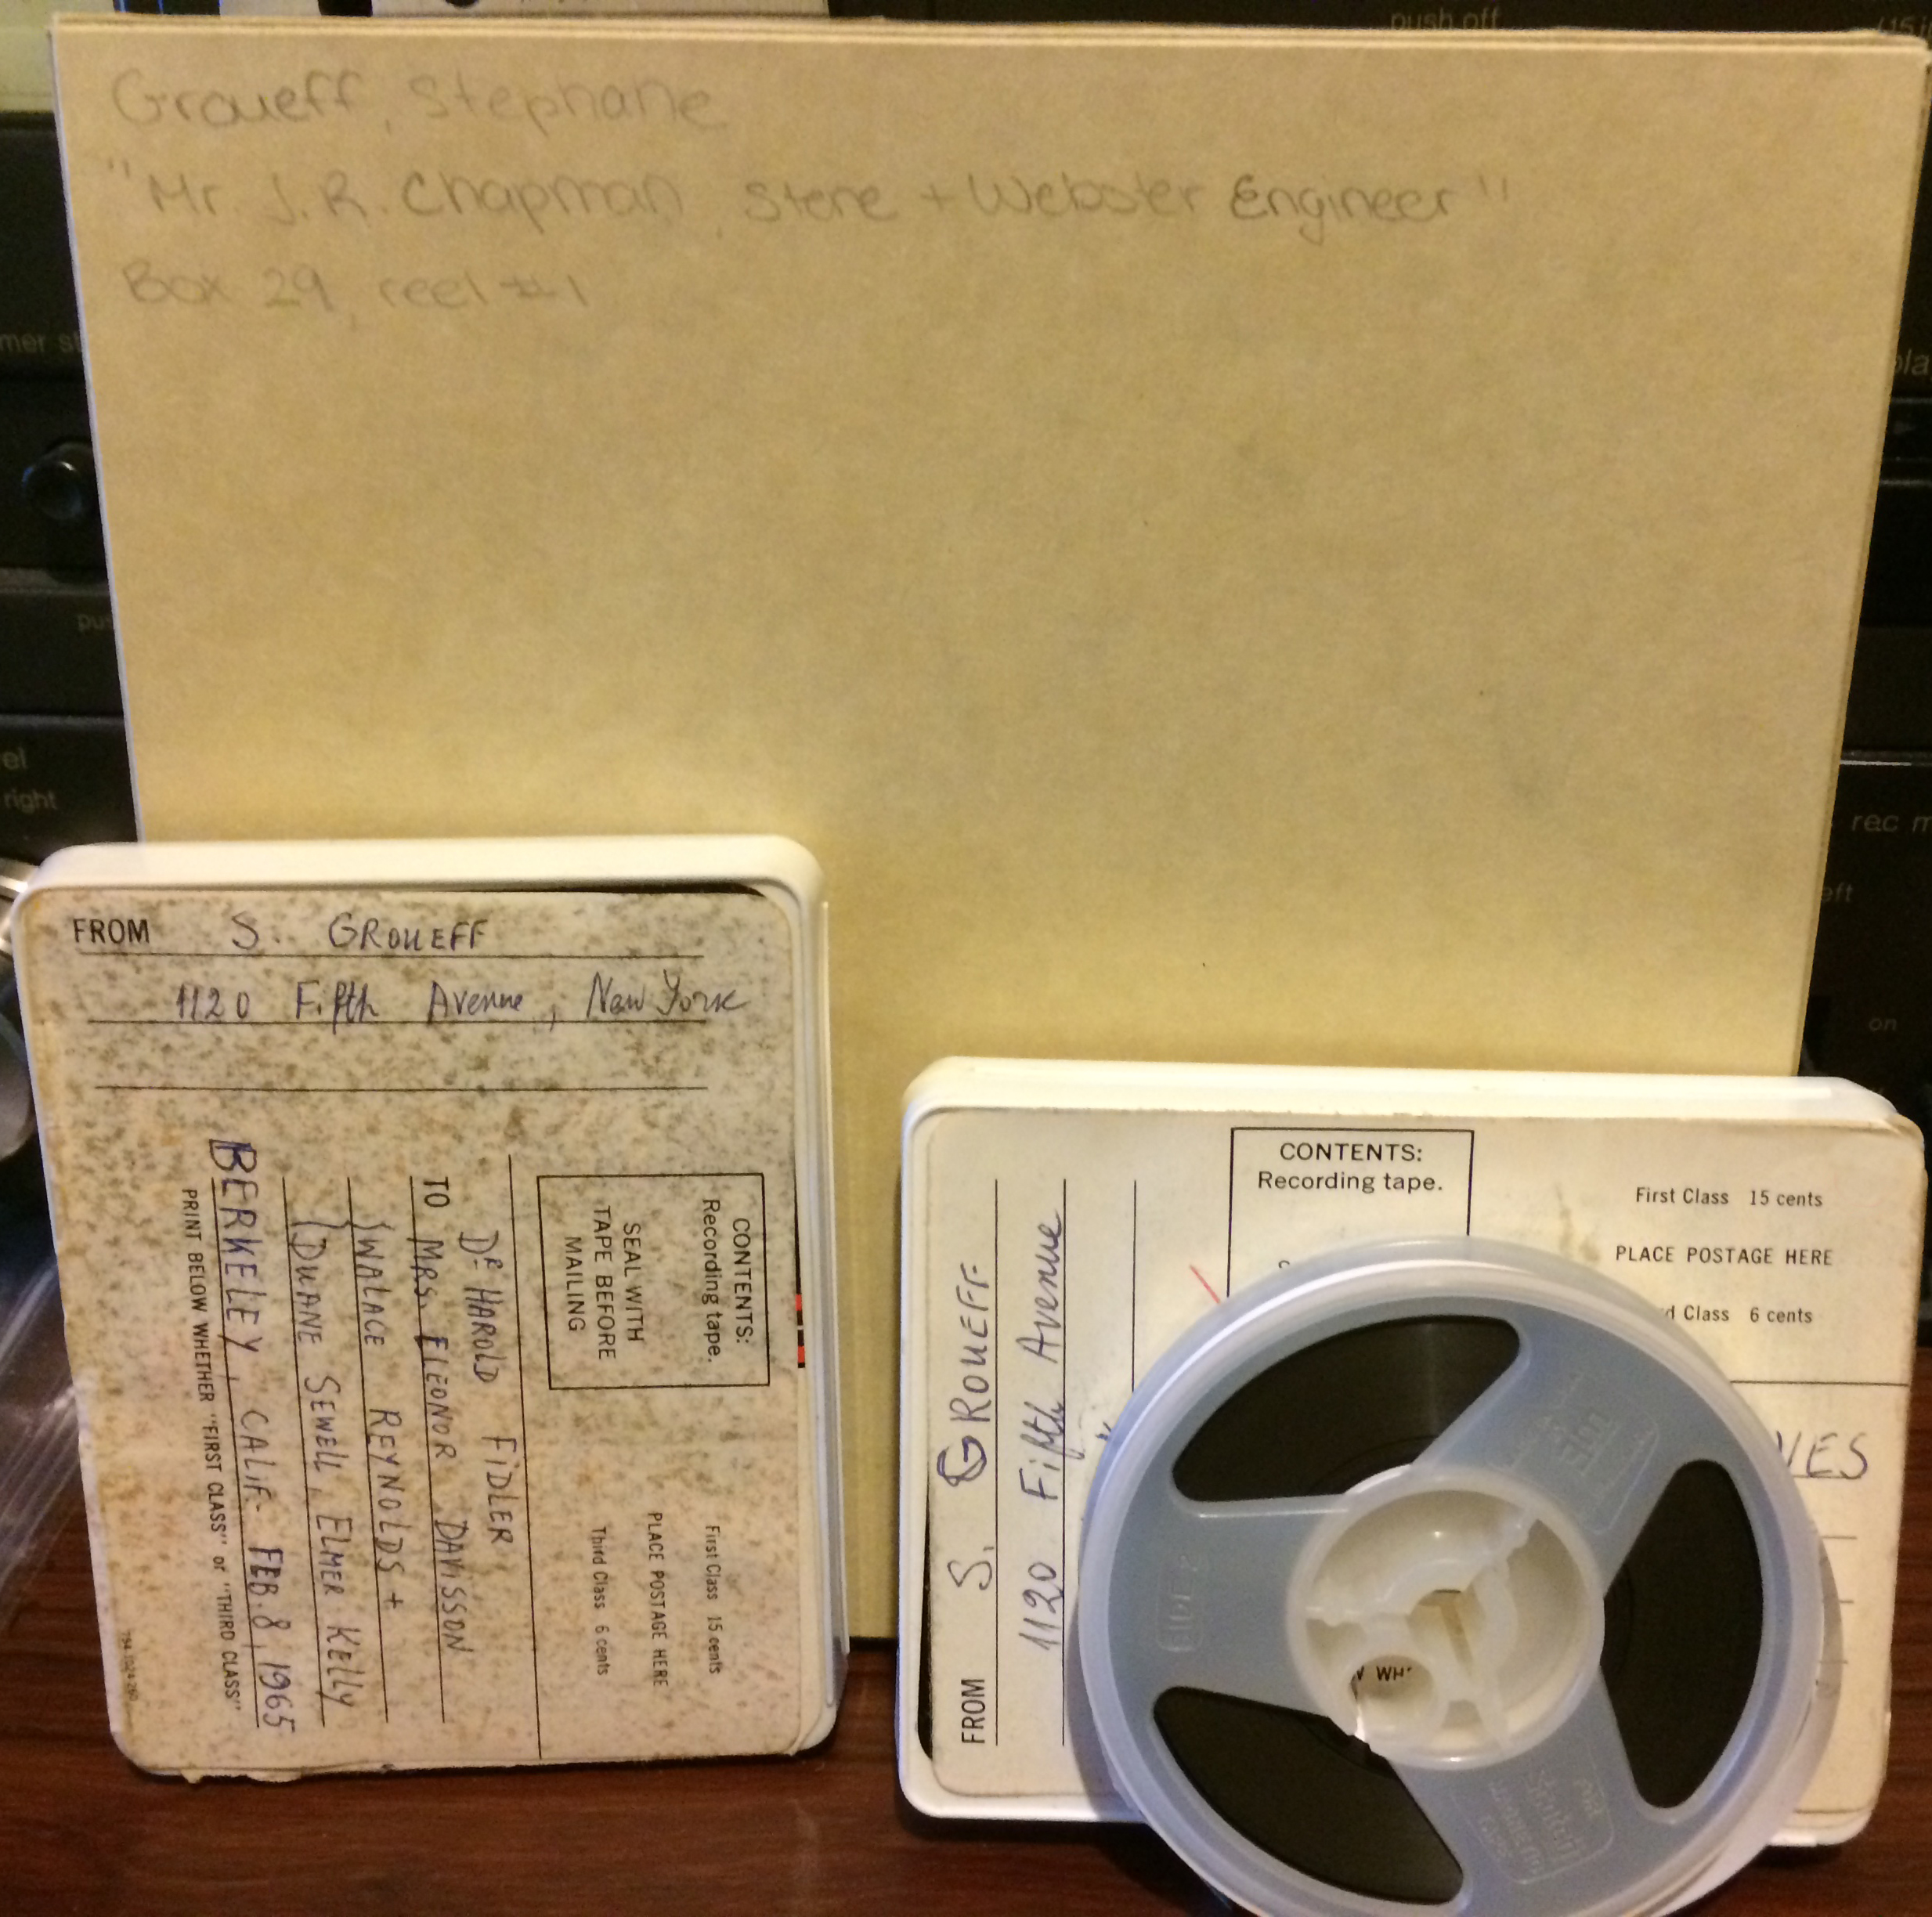 push off
Groueff, Stephane
"Mr. J.R. Chapman, Stone + Webster Engineer"
Box 29, reel #1
right
rec
on
FROM S. GROUEFF
1120 Fifth Avenue, New York
CONTENTS:
Recording tape.
SEAL WITH
TAPE BEFORE
MAILING
First Class 15 cents
PLACE POSTAGE HERE
Third Class 6 cents
Dr HAROLD FIDLER
TO MRS. ELEONOR DAVISSON
{WALACE REYNOLDS +
{DUANE SEWELL, ELMER KELLY
BERKELEY, CALIF. FEB. 8, 1965
PRINT BELOW WHETHER "FIRST CLASS" or "THIRD CLASS"
FROM S. GROUEFF
1120 Fifth Avenue
CONTENTS:
Recording tape.
First Class 15 cents
PLACE POSTAGE HERE
Class 6 cents
VES